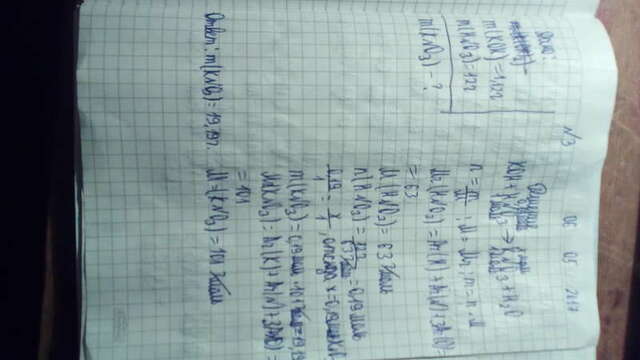 05 05 2017
N3
Дано:
m(KOH)=1,12г
m(HNO3)=12г
m(KNO3)-?
Решение
KOH + HNO3 → KNO3 + H2O
n = m/M ; M = Mr ; m = n·M
Mr(HNO3) = Ar(H) + Ar(N) + 3Ar(O) =
= 63
M(HNO3) = 63 г/моль
n(HNO3) = 12/63 = 0,19 моль
0,19/1 = x/1, откуда x = 0,19 моль
m(KNO3) = 0,19 моль · 101 г/моль = 19,19
Mr(KNO3) = Ar(K) + Ar(N) + 3Ar(O) =
= 101
M = (KNO3) = 101 г/моль
Ответ: m(KNO3) = 19,19г.